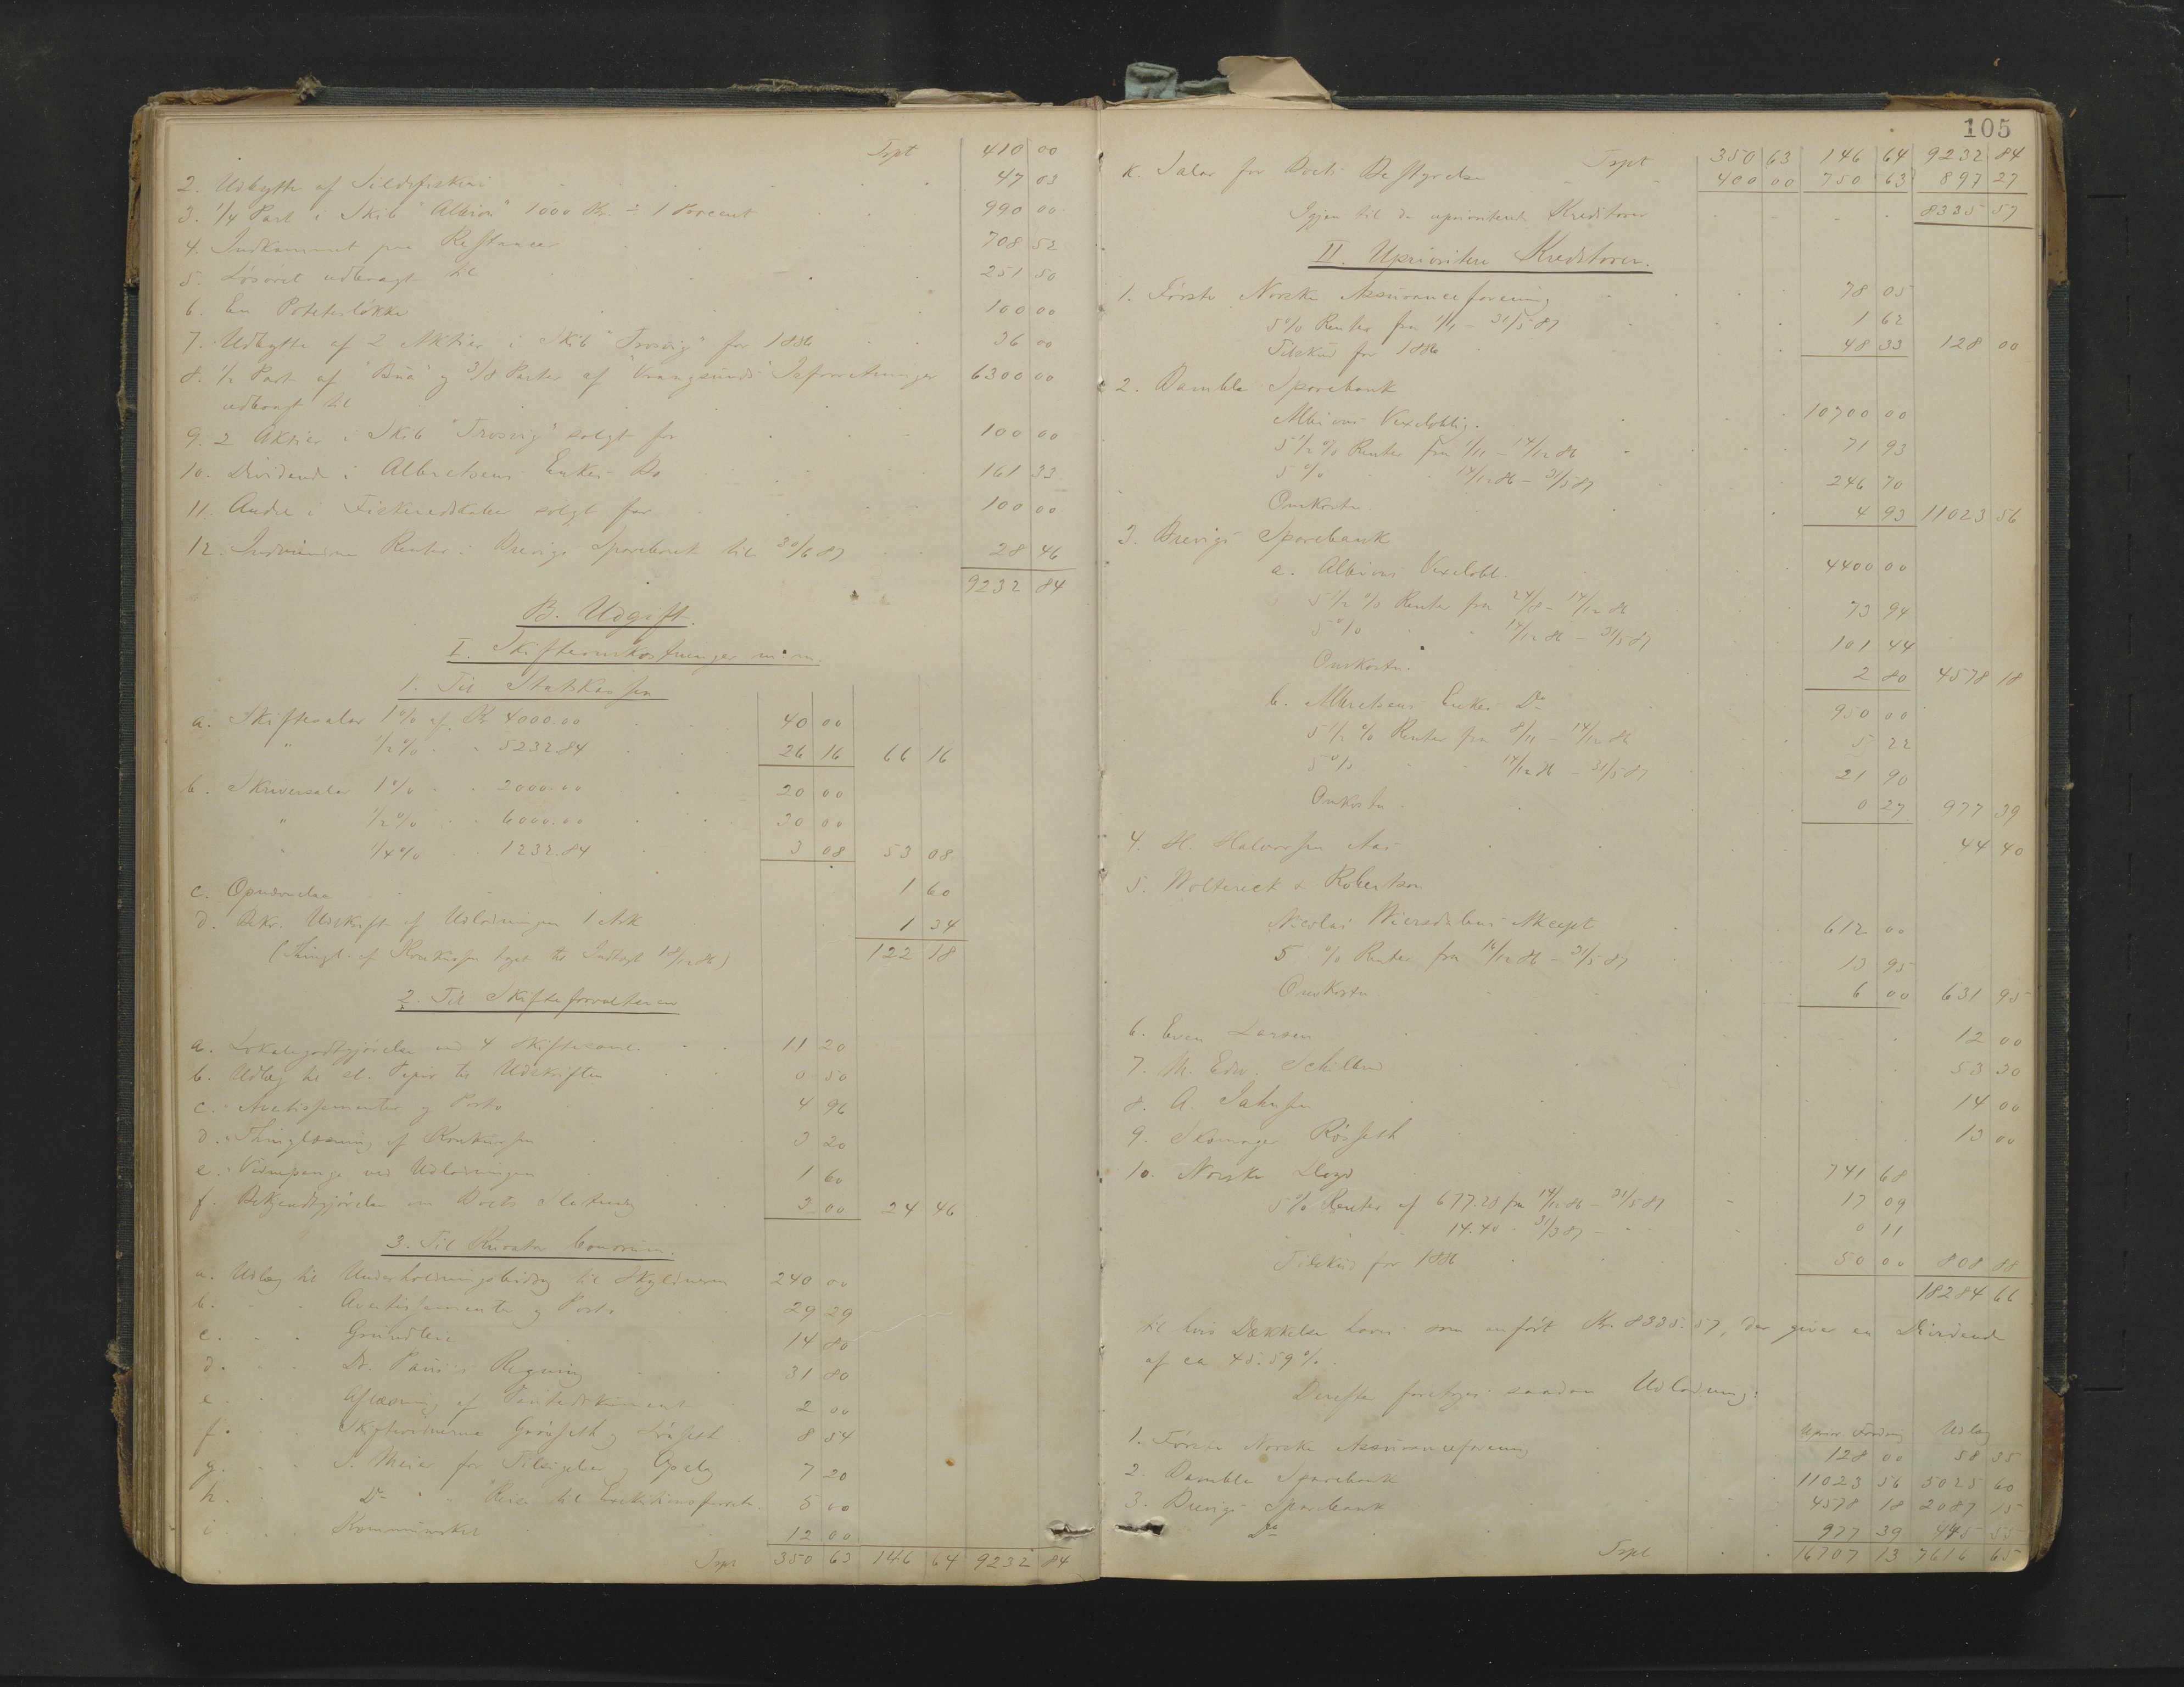 Tspt 410 00
2. Udbytte af Sildefiskeri 47 03
3. 1/4 Part i Skib "Albion" 1000 Kr. ÷ 1 Procent 990 00
4. Indkommet paa Restancer 708 52
5. Løsøret udbragt til 251 50
6. En Potetesløkke 100 00
7. Udbytte af 2 Aktier i Skib "Trosvig" for 1886 36 00
8. 1/2 Part af "Bua" og 3/8 Parter af "Vrangsunds" Isforretninger 6300 00
udbragt til
9. 2 Aktier i Skib "Trosvig" solgt for 100 00
10. Dividende i Albretsens Enkes Bo 161 33
11. Andel i Fiskeredskaber solgt for 100 00
12. Indvundne Renter i Brevigs Sparebank til 30/6 87 28 46
9232 84
B. Udgift.
I. Skifteomkostninger m.m.
1. Til Statskassen
a. Skiftesalær 1% af Kr 4000.00 40 00
" 1/2% " " 5232.84 26 16 66 16
b. Skriversalær 1% " " 2000.00 20 00
" 1/2% " " 6000.00 30 00
" 1/4% " " 1232.84 3 08 53 08
c. Opnævnelse 1 60
d. Bkr. Udskrift af Udlodningen 1 Ark 1 34
(Thingl. af Konkursen taget til Indtægt 18/12 86) 122 18
2. Til Skifteforvalteren
a. Lokalegodtgjørelse ved 4 Skiftesaml. 11 20
b. Udlæg til st. Papir til Udskriften 0 50
c. " Avertissementer og Porto 4 96
d. " Thinglæsning af Konkursen 3 20
e. " Vidnepenge ved Udlodningen 1 60
f. Bekjendtgjørelse om Boets Slutning 3 00 24 46
3. Til Kurator bonorum.
a. Udlæg til Underholdningsbidrag til Skyldneren 240 00
b. " " Avertissementer og Porto 29 29
c. " " Grundleie 14 80
d. " " Dr. Paus's Regning 31 80
e. " " Aflæsning af Pantedokument 2 00
f. " " Skiftevidnerne 8 54
g. " " J. Meier for Tilsigelser 7 20
h. " " Do " " Reise til 5 00
i. " " 12 00
Tspt 350 63 146 64 9232 84
105
Tspt 350 63 146 64 9232 84
k. Salær for Boets Bestyrelse 400 00 750 63 897 27
Igjen til de uprioriterede Kreditorer 8335 57
II. Uprioriterte Kreditorer.
1. Første Norske Assuranceforening 78 05
5% Renter fra 1/1 - 31/5 87 1 62
Tilskud for 1886 48 33 128 00
2. Bamble Sparebank
Albions Vexeloblig. 10700 00
5 1/2 % Renter fra 1/11 - 14/12 86 71 93
5 % " " 14/12 86 - 31/5 87 246 70
Omkostn 4 93 11023 56
3. Brevigs Sparebank
a. Albions Vexelobl. 4400 00
5 1/2 % Renter fra 24/8 - 14/12 86 73 94
5 % " " 14/12 86 - 31/5 87 101 44
Omkostn. 2 80 4578 18
b. Albretsens Enkes Do 950 00
5 1/2 % Renter fra 8/11 - 14/12 86 5 22
5 % " " 14/12 86 - 31/5 87 21 90
Omkostn. 0 27 977 39
4. H. Halvorsen Aas 44 40
5. Woltereck & Robertson
Nicolai Wiersdalens Akcept 612 00
5 % Renter fra 16/12 86 - 31/5 87 13 95
Omkostn 6 00 631 95
6. Even Larsen 12 00
7. M. Edv. Schilbred 53 30
8. A. Jahnsen 14 00
9. Skomager Røsseth 13 00
10. Norske Lloyd 741 68
5% Renter af 677.28 fra 14/12 86 - 31/5 87 17 09
" " " 14.40 " 31/3 87 - " 0 11
Tilskud for 1886 50 00 808 88
18284 66
til hvis Dækkelse haves som anført Kr. 8335.57, der giver en Dividende
af ca 45.59%.
Derefter foretoges saadan Udlodning:
Uprior. Fordring Udlæg
1. Første Norske Assuranceforening 128 00 58 35
2. Bamble Sparebank 11023 56 5025 60
3. Brevigs Sparebank 4578 18 2087 15
Do 977 39 445 55
Tspt 16707 13 7616 65